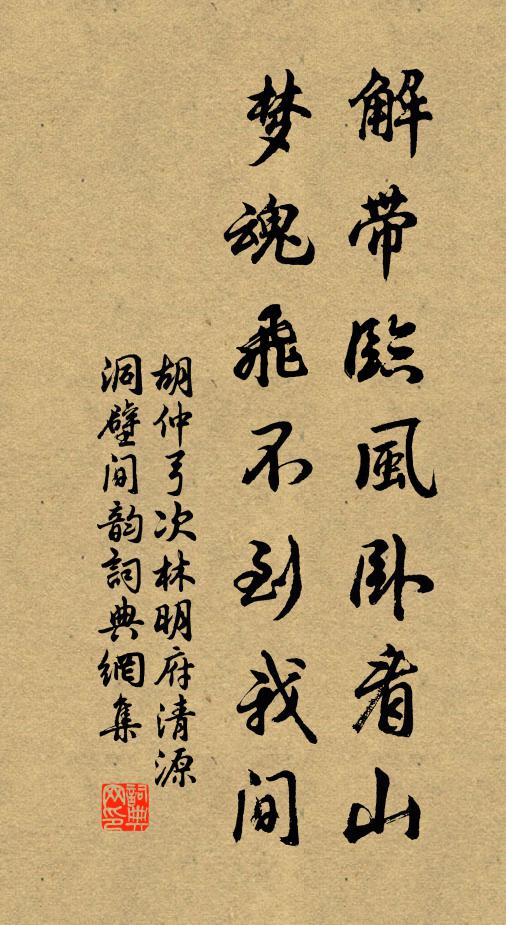 解带臨風卧看山
梦魂飛不到我间
胡仲弓次林明府清源
洞壁间韵詞典網集
詞典网印